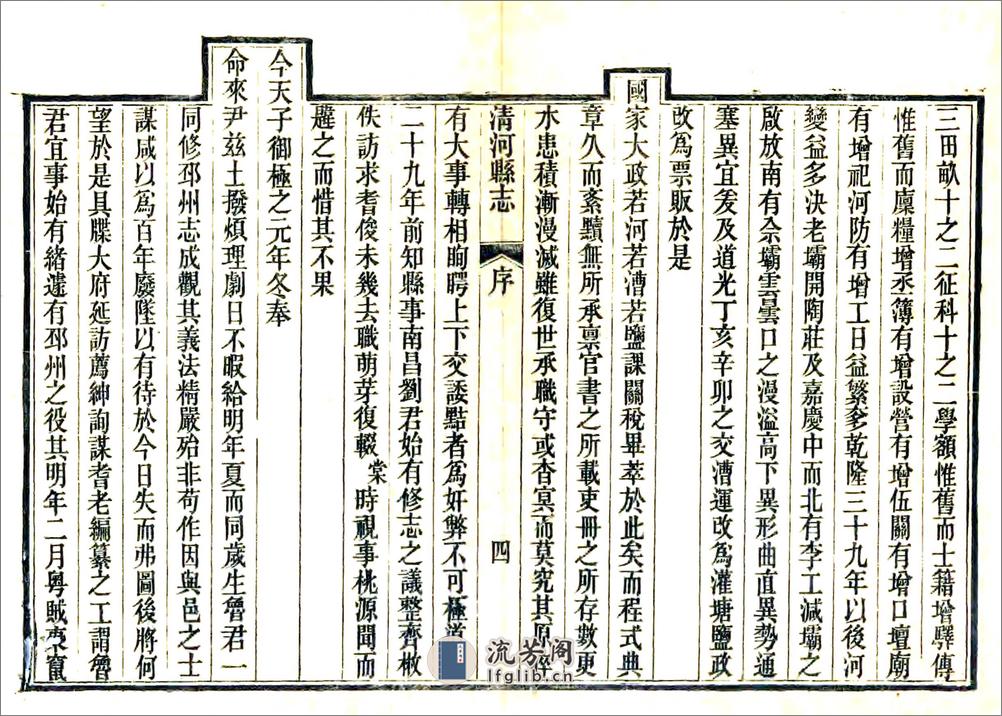 三田畝十之二征科十之二學額惟舊而士籍增驛傳
惟舊而廩糧增丞簿有增設營有增伍關有增口壇廟
有增祀河防有增工日益繁多乾隆三十九年以後河
變益多決老壩開陶莊及嘉慶中而北有李工減壩之
啟放南有佘壩雲曇口之漫溢高下異形曲直異勢通
塞異宜爰及道光丁亥辛卯之交漕運改為灌塘鹽政
改為票販於是
國家大政若河若漕若鹽課關稅畢萃於此矣而程式典
章久而紊黷無所承禀官書之所載吏冊之所存數更
水患積漸漫滅雖復世承職守或杳冥而莫究其原
清河縣志
序
四
有大事轉相眴㗁上下交諉黠者為奸弊不可極道
二十九年前知縣事南昌劉君始有修志之議整齊散
佚訪求耆俊未幾去職萌芽復輟棠時視事桃源聞而
韙之而惜其不果
今天子御極之元年冬奉
命來尹茲土撥煩理劇日不暇給明年夏而同歲生魯君一
同修邳州志成觀其義法精嚴殆非苟作因與邑之士
謀咸以為百年廢墜以有待於今日失而弗圖後將何
望於是具牒大府延訪薦紳詢謀耆老編纂之工謂魯
君宜事始有緒遽有邳州之役其明年二月粵賊東竄
流芳阁
lfglib.cn